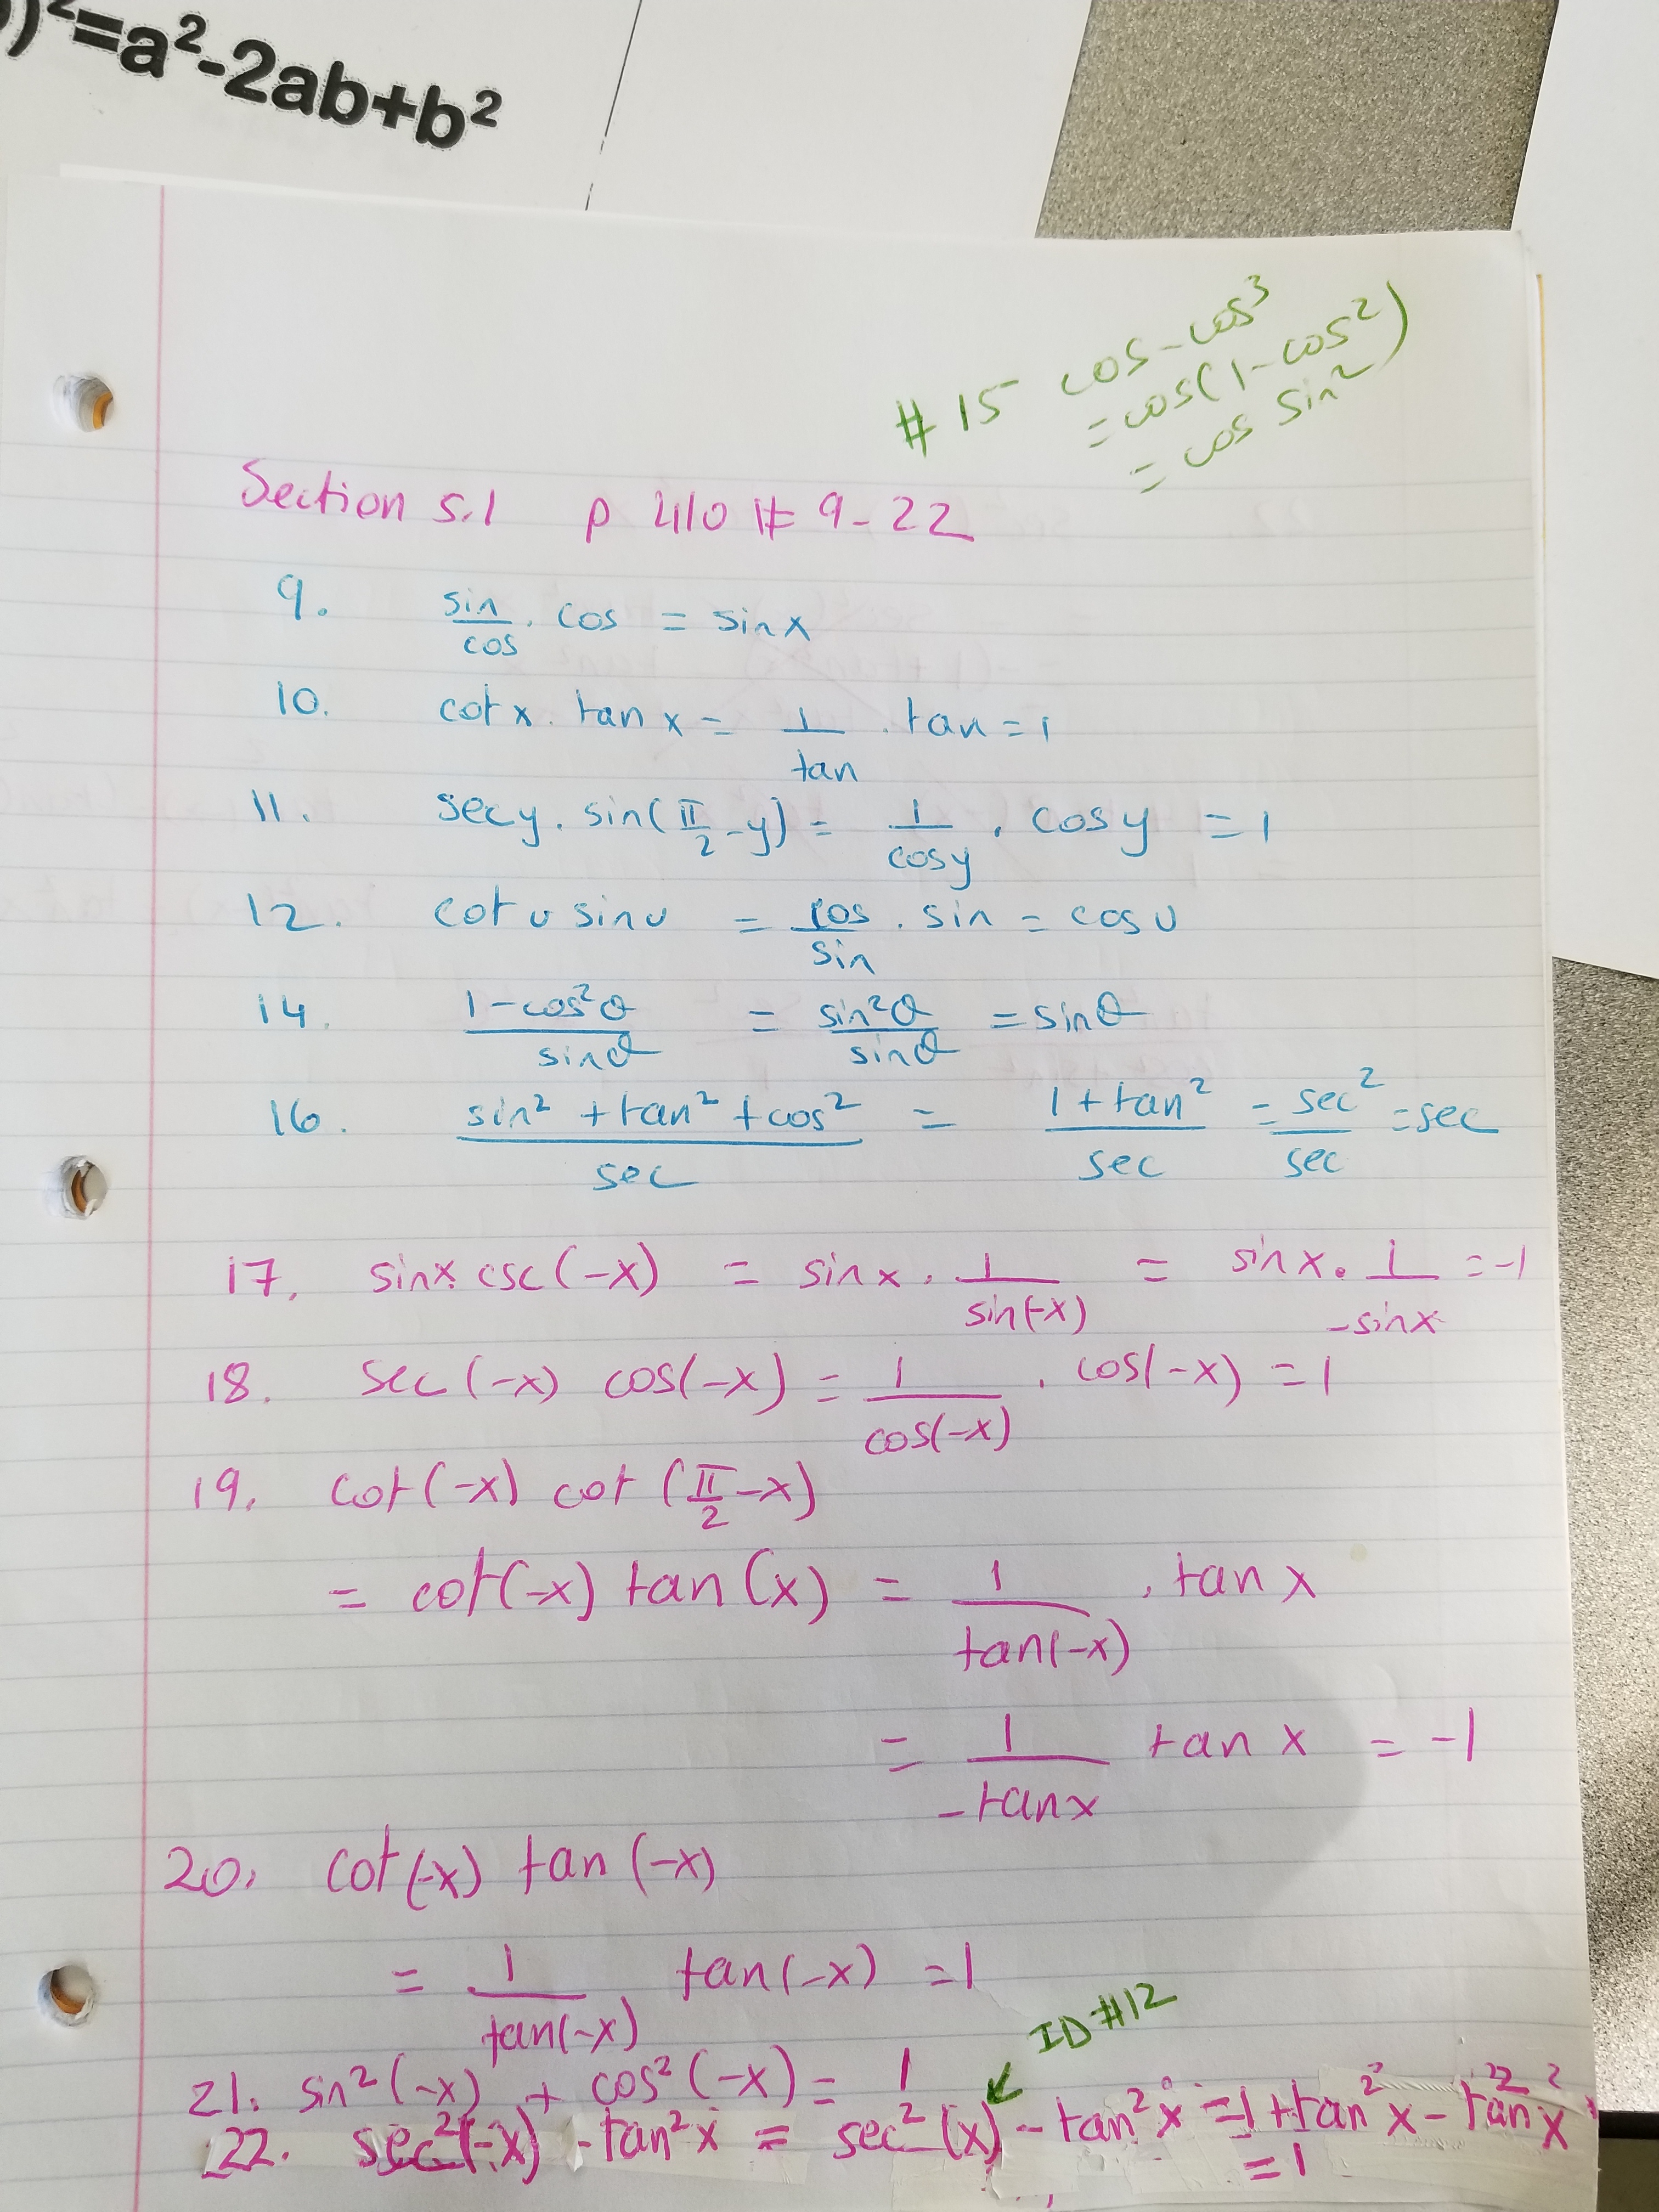 )²=a²-2ab+b²
#15 cos-cos³
=cos(1-cos²)
= cos sin²
Section 5.1 p 410 # 9-22
9. sin/cos · cos = sinx
10. cotx · tanx = 1/tan · tan = 1
11. secy · sin(π/2 - y) = 1/cosy · cosy = 1
12. cot u sin u = cos/sin · sin = cos u
14. 1-cos²θ/sinθ = sin²θ/sinθ = sinθ
16. sin² + tan² + cos²/sec = 1+tan²/sec = sec²/sec = sec
17. sinx csc(-x) = sinx · 1/sin(-x) = sinx · 1/-sinx = -1
18. sec(-x) cos(-x) = 1/cos(-x) · cos(-x) = 1
19. cot(-x) cot(π/2 - x)
= cot(-x) tan(x) = 1/tan(-x) · tan x
= 1/-tanx tan x = -1
20. cot(-x) tan(-x)
= 1/tan(-x) tan(-x) = 1
ID #12
21. sin²(-x) + cos²(-x) = 1
22. sec²(-x) - tan²x = sec²(x) - tan²x = 1+tan²x - tan²x
= 1